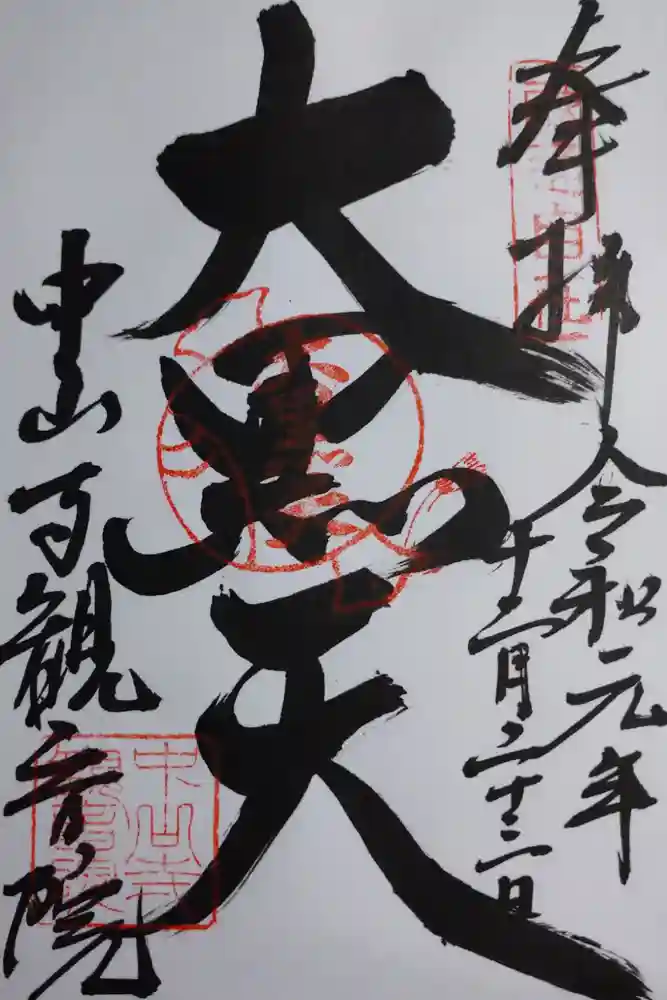 奉拝
令和元年
十二月二十二日
大黒天
中山寺観音院
中山寺